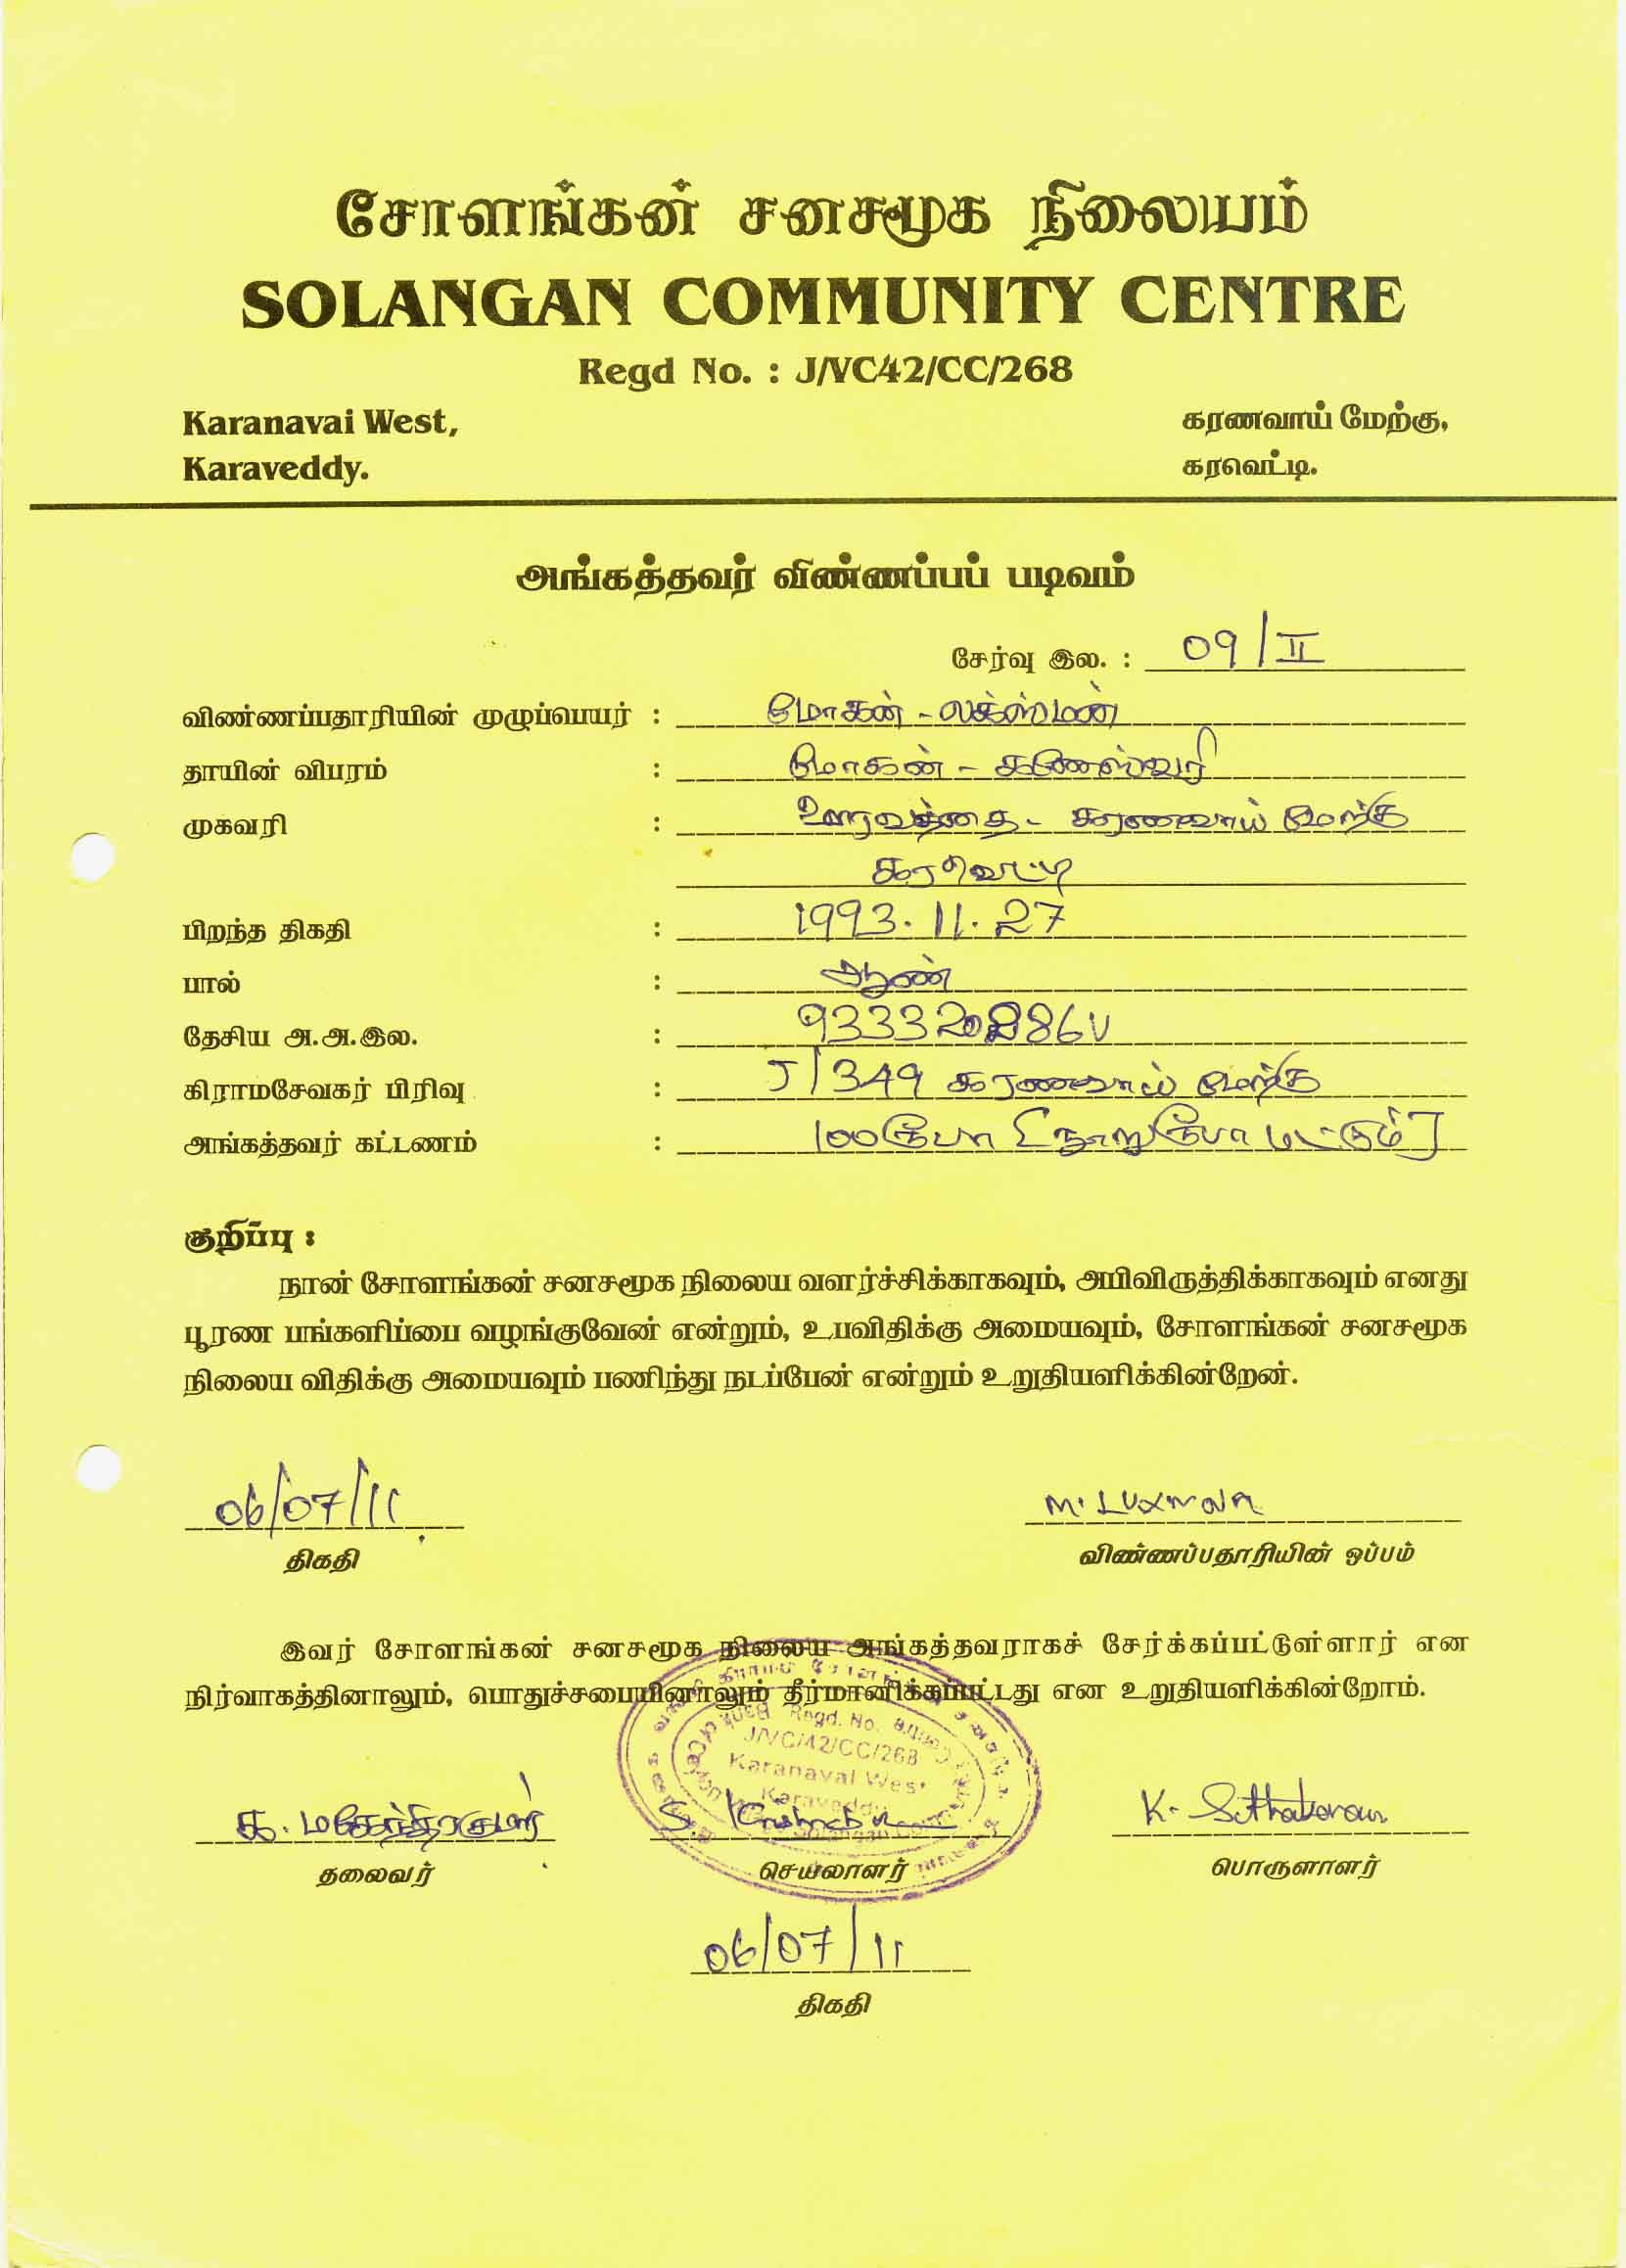 சோளங்கன் சனசமூக நிலையம்
SOLANGAN COMMUNITY CENTRE
Regd No. : J/VC42/CC/268
Karanavai West, கரணவாய் மேற்கு,
Karaveddy. கரவெட்டி.
அங்கத்தவர் விண்ணப்பப் படிவம்
சேர்வு இல. : 09/II
விண்ணப்பதாரியின் முழுப்பெயர் : மோகன் - லக்ஸ்மன்
தாயின் விபரம் : மோகன் - கணேஸ்வரி
முகவரி : கரணவாய் மேற்கு
கரவெட்டி
பிறந்த திகதி : 1993.11.27
பால் : ஆண்
தேசிய அ.அ.இல. :
கிராமசேவகர் பிரிவு : J/349 கரணவாய் மேற்கு
அங்கத்தவர் கட்டணம் : 100ரூபா [நூறுரூபா மட்டும்]
குறிப்பு :
நான் சோளங்கன் சனசமூக நிலைய வளர்ச்சிக்காகவும், அபிவிருத்திக்காகவும் எனது
பூரண பங்களிப்பை வழங்குவேன் என்றும், உபவிதிக்கு அமையவும், சோளங்கன் சனசமூக
நிலைய விதிக்கு அமையவும் பணிந்து நடப்பேன் என்றும் உறுதியளிக்கின்றேன்.
06/07/11 M. Luxman
திகதி விண்ணப்பதாரியின் ஒப்பம்
இவர் சோளங்கன் சனசமூக நிலைய அங்கத்தவராகச் சேர்க்கப்பட்டுள்ளார் என
நிர்வாகத்தினாலும், பொதுச்சபையினாலும் தீர்மானிக்கப்பட்டது என உறுதியளிக்கின்றோம்.
Regd. No.
J/VC/42/CC/268
Karanavai West
Karaveddy
க. மகேந்திரகுமார் S. K. Sithakaran
தலைவர் செயலாளர் பொருளாளர்
06/07/11
திகதி